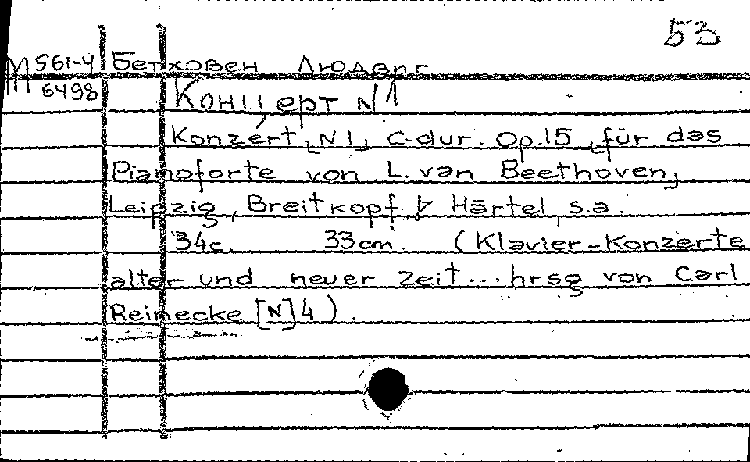 53
М 561-4 Бетховен Людвиг
6498 Концерт N1
Konzert [N 1] C-dur. Op.15 für das
Pianoforte von L. van Beethoven,
Leipzig, Breitkopf & Härtel, s.a.
34c. 33cm. (Klavier-Konzerte
alter und neuer Zeit... hrsg von Carl
Reinecke [N]4).